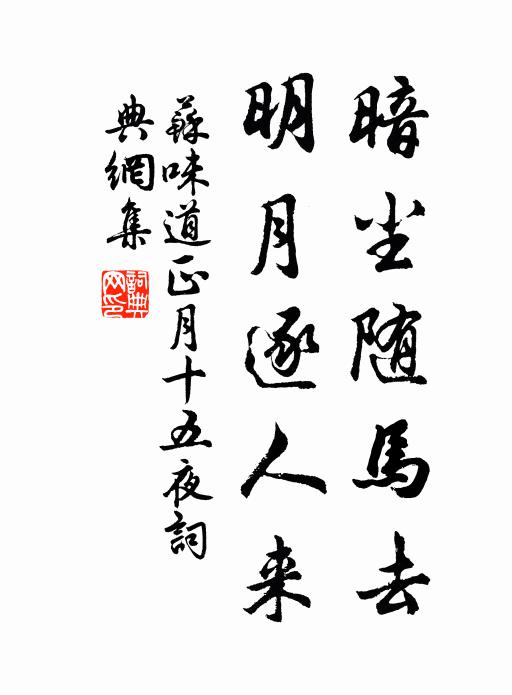 暗尘随馬去
明月逐人来
蘇味道正月十五夜詞
典網集
詞典
网印